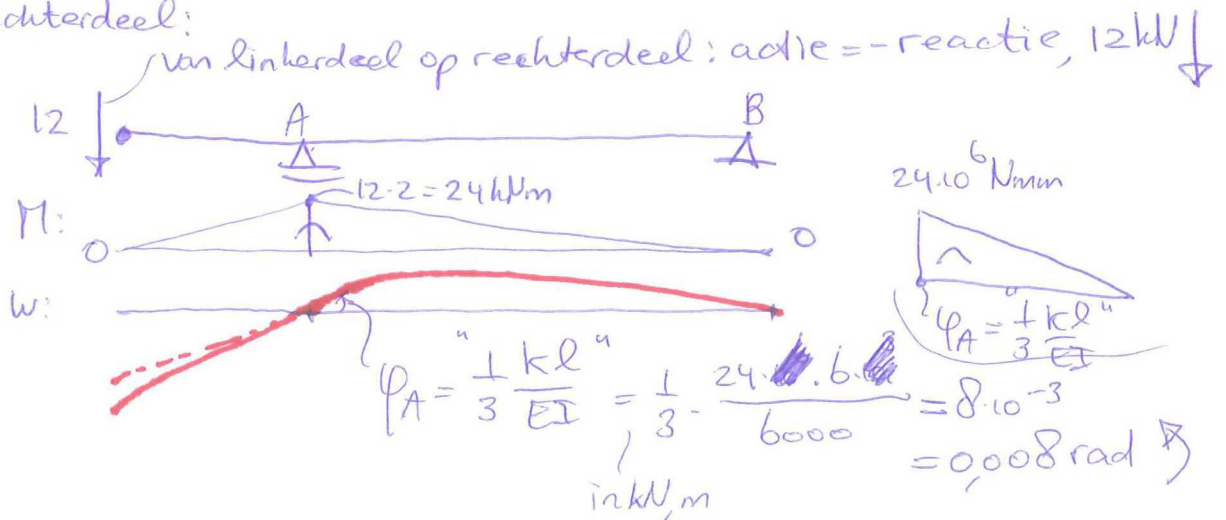 chterdeel:
van linkerdeel op rechterdeel: actie = - reactie, 12 kN ↓
12
A
B
12·2 = 24 kNm
24·10⁶ Nmm
M:
0
0
w:
φA = "1/3 kl/EI"
φA = "1/3 kl/EI" = 1/3 · 24·6/6000 = 8·10⁻³
= 0,008 rad
in kN, m